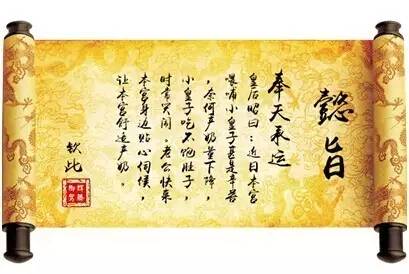 懿旨
奉天承运
皇后昭曰：近日本宫
喂哺小皇子甚是辛苦
，奈何产奶量下降，
小皇子吃不饱肚子，
时常哭闹。老公快来
本宫身边贴心伺候，
让本宫舒适产奶，
钦此